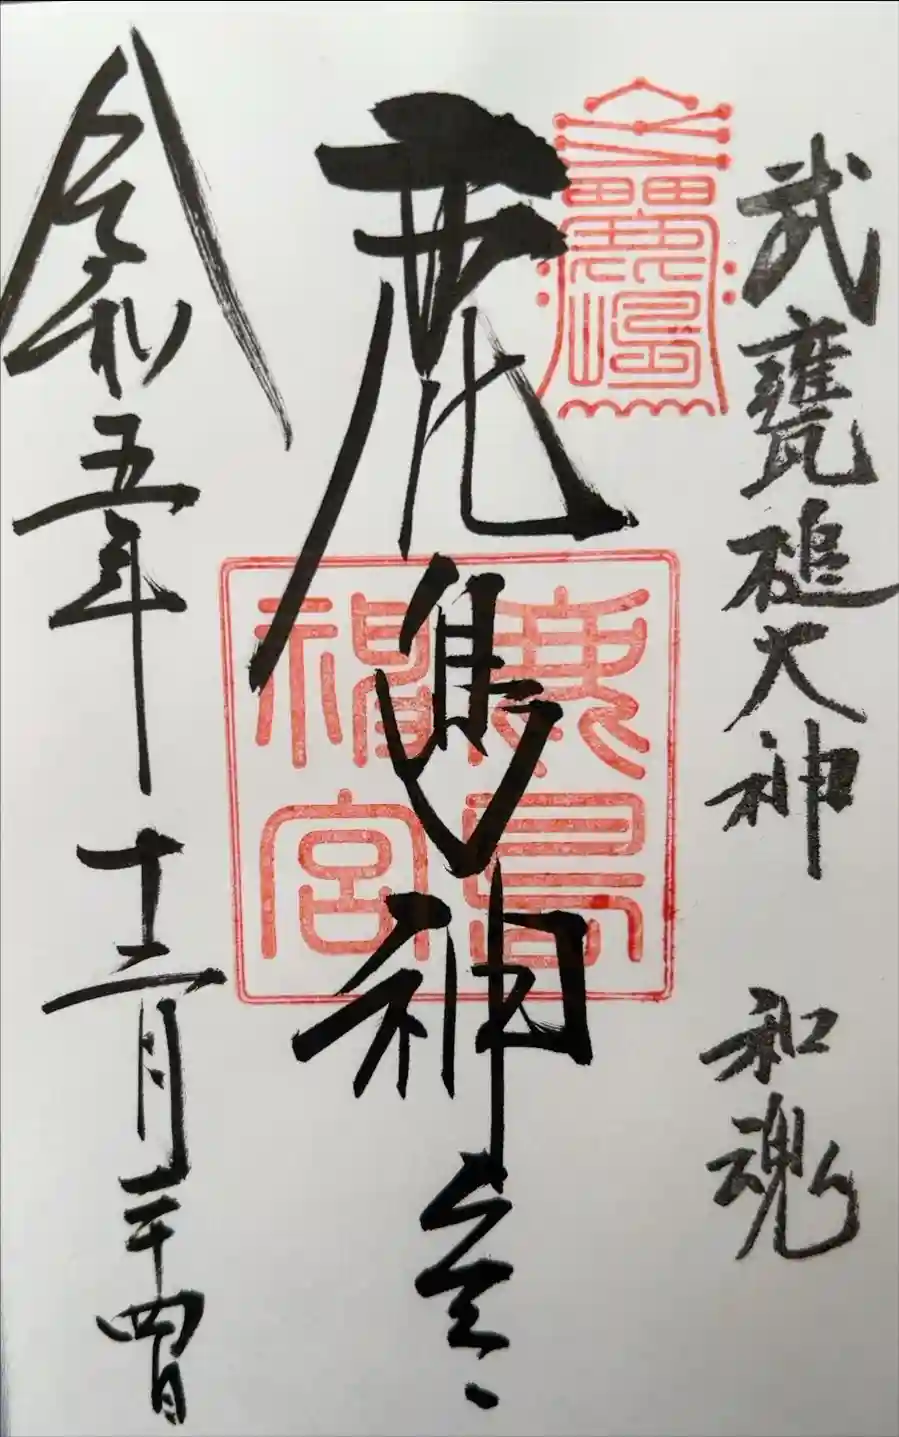 武甕槌大神　和魂
鹿嶋
鹿島神宮
鹿島神宮
令和五年十二月二十四日